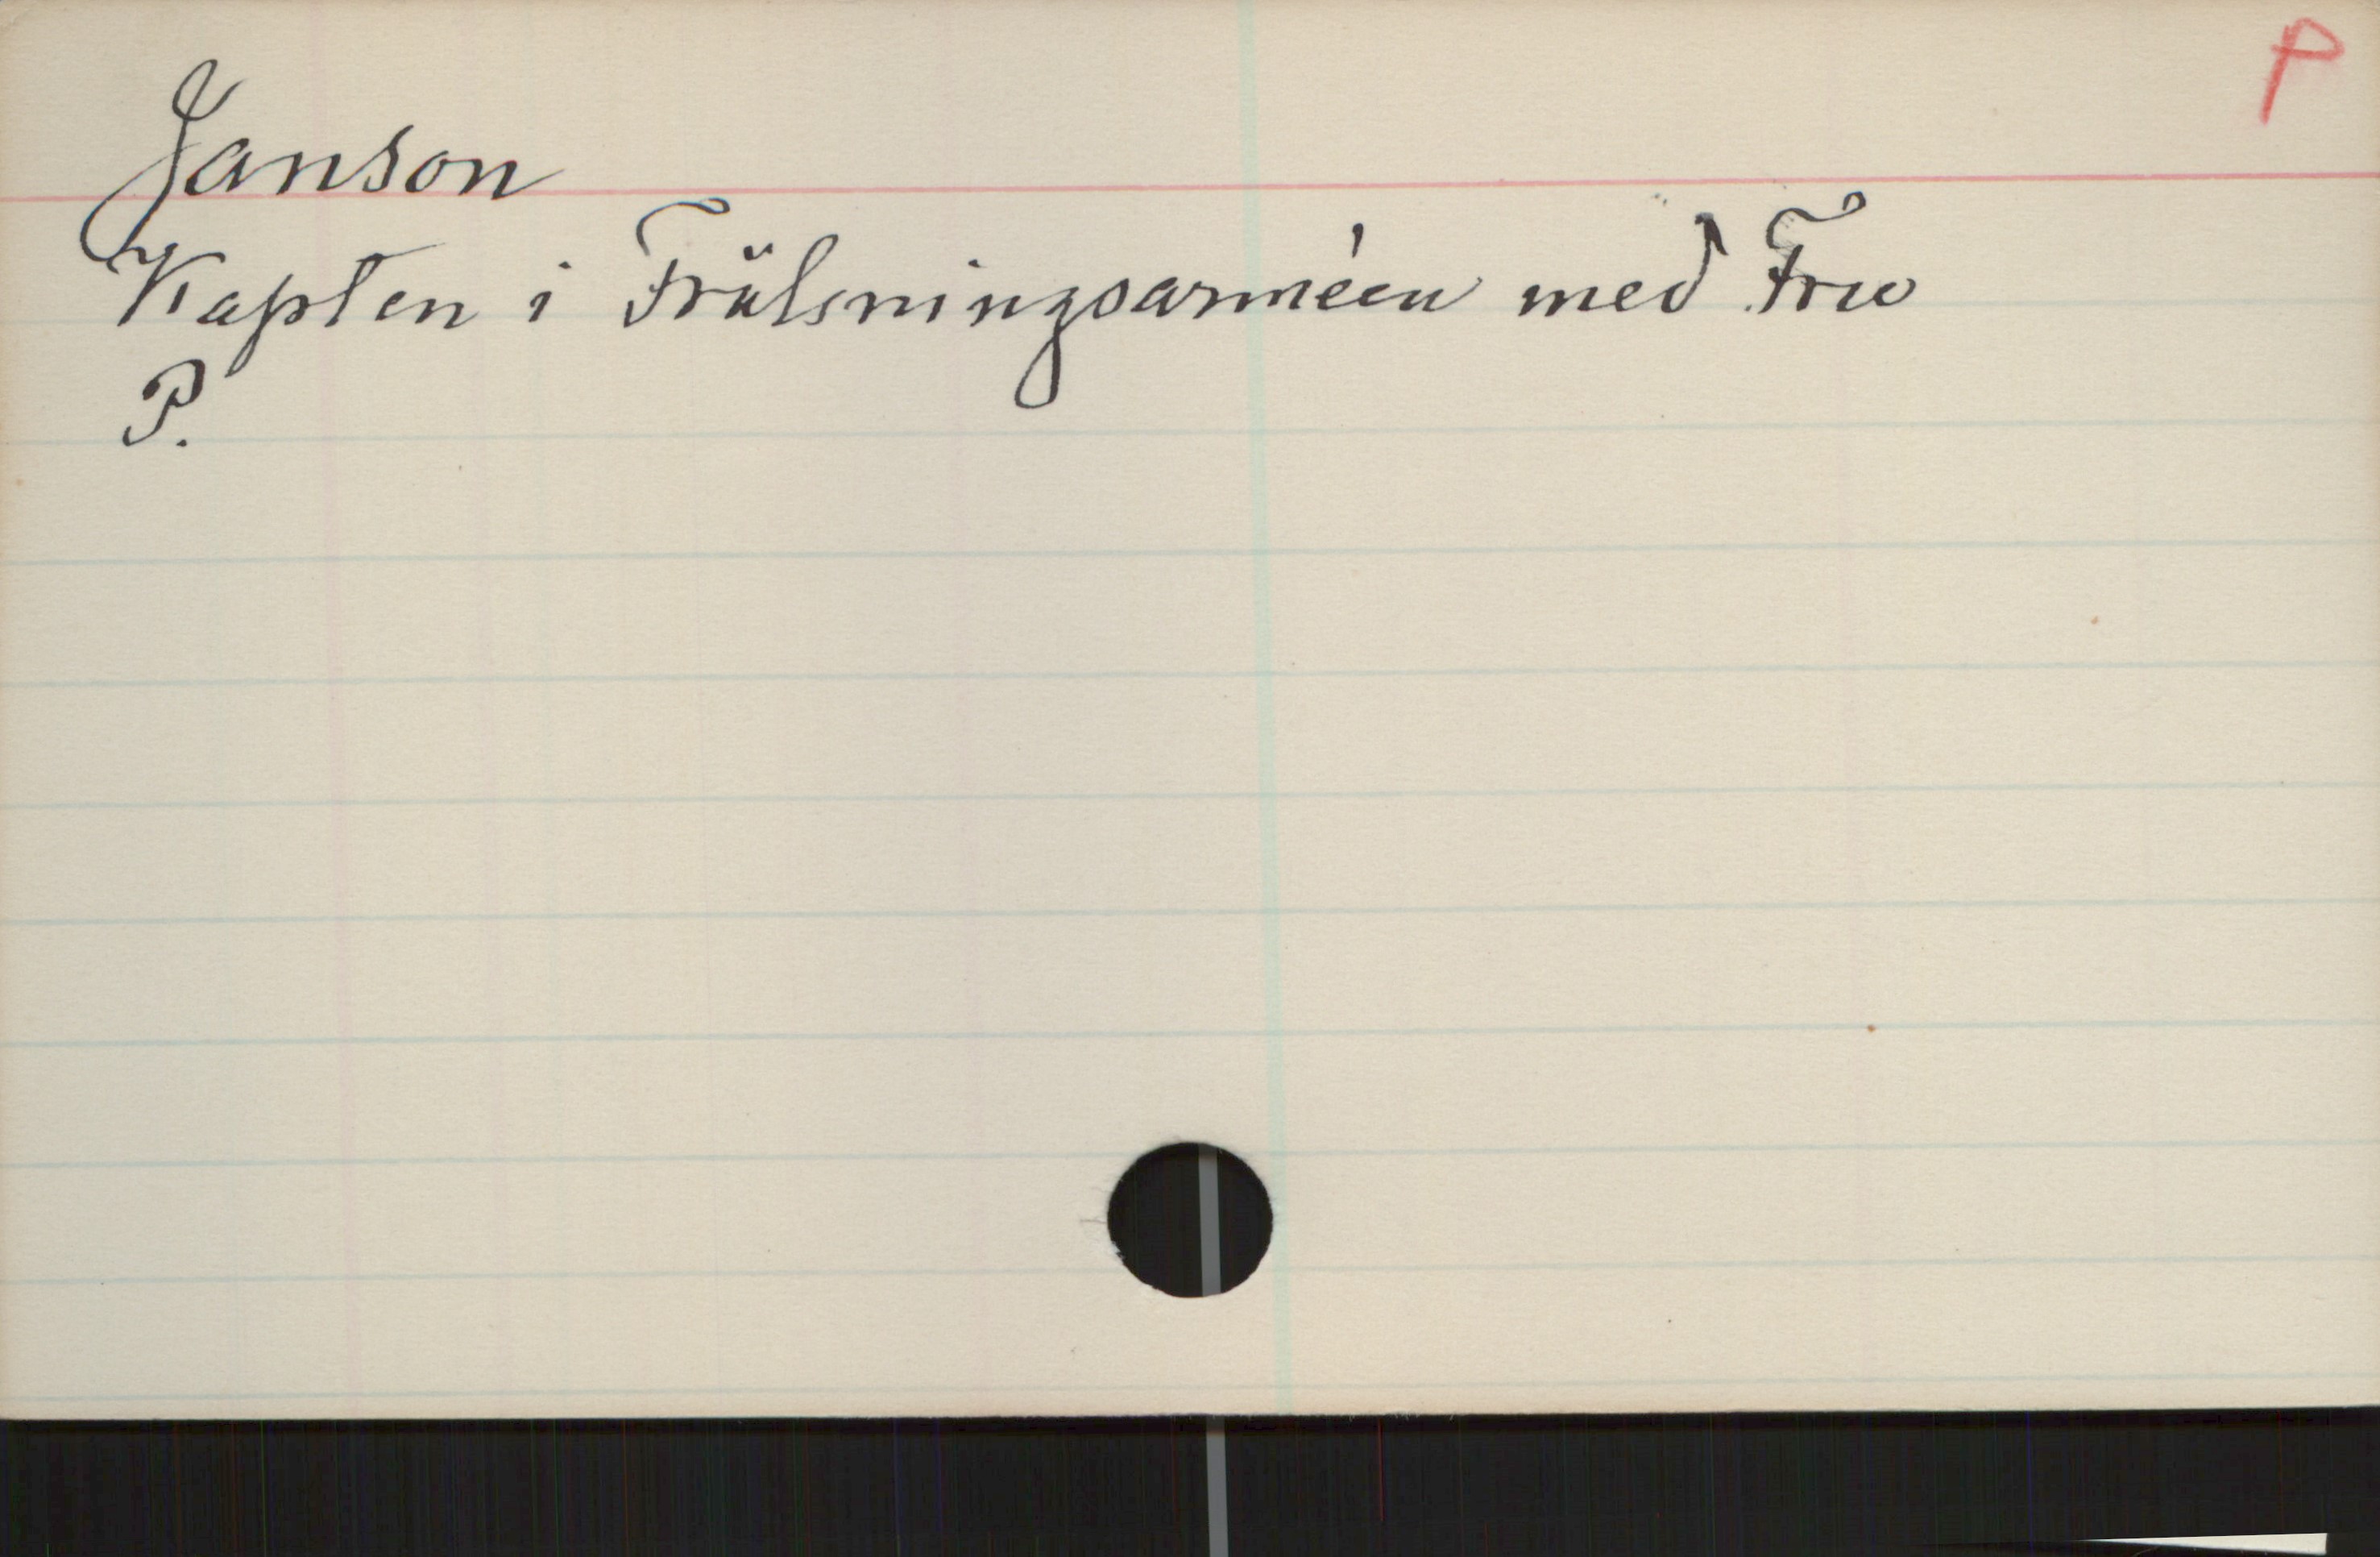 P
Janson
Kapten i Frälsningsarméen med Fru
P.